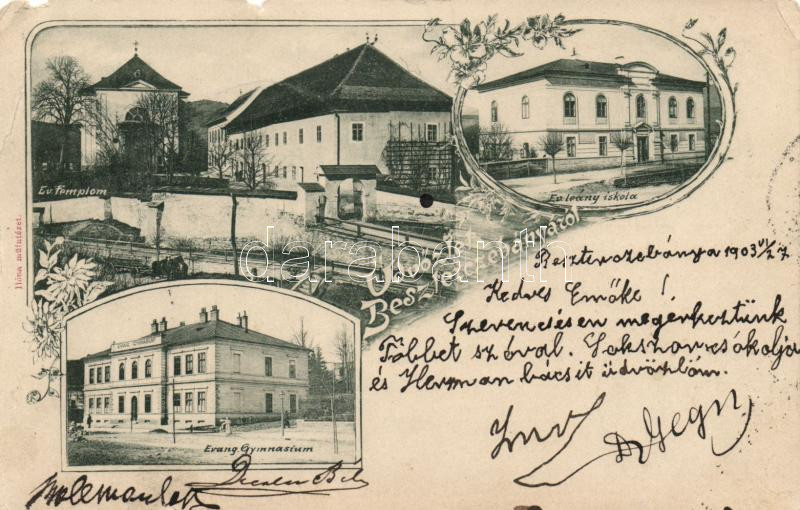 Ev. templom
Ev. leány iskola
Ilona műintézet.
Üdvözlet
Beszterczebányáról
darabanth
Evang. Gymnasium
Beszterczebánya 1903 VI/27
Kedves Emőke!
Szerencsésen megérkeztünk
Többet szóval. Sokszor csókolja
és Herman bácsit üdvözlöm.